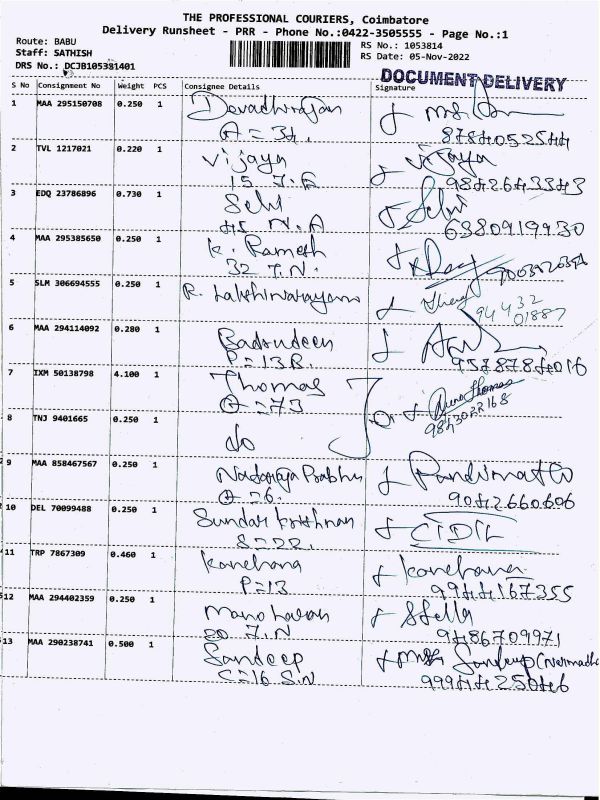 THE PROFESSIONAL COURIERS, Coimbatore
Delivery Runsheet - PRR - Phone No.:0422-3505555 - Page No.:1
Route: BABU
Staff: SATHISH
DRS No.: DCJB105381401
RS No.: 1053814
RS Date: 05-Nov-2022
DOCUMENT DELIVERY
S No Consignment No Weight PCS Consignee Details Signature
1 MAA 295150708 0.250 1
A = 34.
2 TVL 1217021 0.220 1 Vijaya Vijaya
9842643343
3 EDQ 23786896 0.730 1 Selvi Selvi
45 N.A 6380919930
4 MAA 295385650 0.250 1 K. Ramesh
32 7.N.
5 SLM 306694555 0.250 1 R. Lakshminarayanan
94432
01887
6 MAA 294114092 0.280 1 Badrudeen
P = 13B. 9578784016
7 IXM 50138798 4.100 1 Thomas
A = 73 9843022168
8 TNJ 9401665 0.250 1 do
9 MAA 858467567 0.250 1 Nataraja Prabhu
A = 6. 9042660606
10 DEL 70099488 0.250 1 Sundar Krishnan
S = 22.
11 TRP 7867309 0.460 1 Kanchana Kanchana
P = 13 9944167355
12 MAA 294402359 0.250 1 Manoharan Stella
20 7.N 9486709971
13 MAA 290238741 0.500 1 Sandeep Sandeep
C = 16 S.N 9994425046